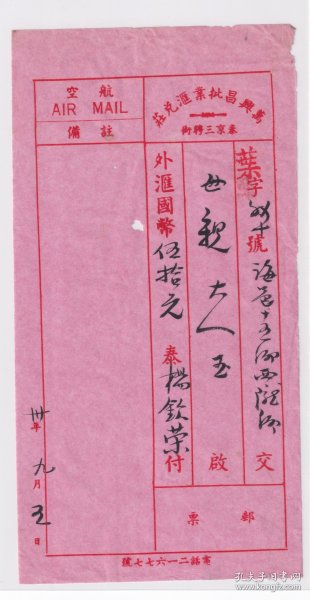 萬興昌批業滙兌莊
泰京三聘街
葉字十號 海邑十五鄉西隴鄉 交
母親大人玉 啟
外滙國幣伍拾元 泰楊欽榮付
航空
AIR MAIL
註備
卅年九月五日
郵票
電話二一六七七號